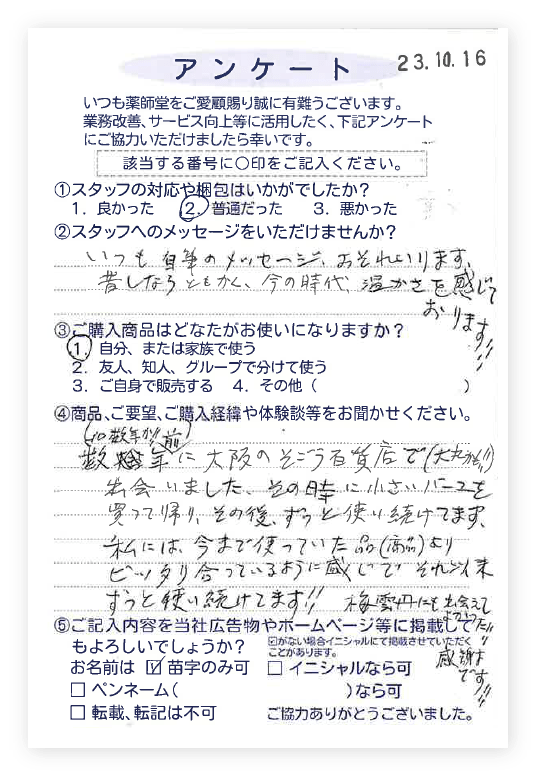 アンケート
23.10.16
いつも薬師堂をご愛顧賜り誠に有難うございます。
業務改善、サービス向上等に活用したく、下記アンケート
にご協力いただけましたら幸いです。
該当する番号に〇印をご記入ください。
①スタッフの対応や梱包はいかがでしたか?
1. 良かった 2. 普通だった 3. 悪かった
②スタッフへのメッセージをいただけませんか?
いつも自筆のメッセージ、おそれいります、
昔しならともかく、今の時代、温かさを感じて
おります!!
③ご購入商品はどなたがお使いになりますか?
1. 自分、または家族で使う
2. 友人、知人、グループで分けて使う
3. ご自身で販売する 4. その他( )
④商品、ご要望、ご購入経緯や体験談等をお聞かせください。
(10数年
前)
年に大阪のそごう百貨店で(大丸
出会いました、その時に小さい
買って帰り、その後、ずっと使い続けてます、
私には、今まで使っていた品(高品)より
ピッタリ合っているように感じで それ以来
ずっと使い続けてます!! 梅雲丹にも出会えて
感謝
です!!
⑤ご記入内容を当社広告物やホームページ等に掲載して
もよろしいでしょうか?
☑がない場合イニシャルにて掲載させていただく
ことがあります。
お名前は ☑ 苗字のみ可 □ イニシャルなら可
□ ペンネーム( )なら可
□ 転載、転記は不可 ご協力ありがとうございました。